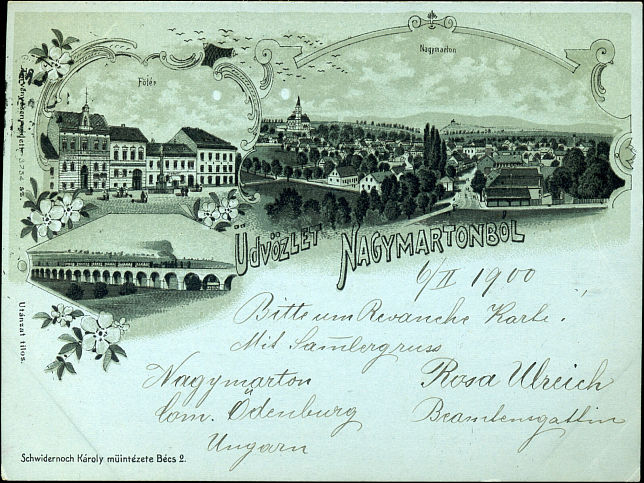 Nagymarton
Főtér
ÜDVÖZLET NAGYMARTONBÓL
6/II 1900
Bitte um Revanche Karte.
Mit Sam̄lergruss
Nagymarton
Com. Ödenburg
Ungarn
Rosa Ulreich
Beamtensgattin
Utánzat tilos.
Schwidernoch Károly műintézete Bécs 2.